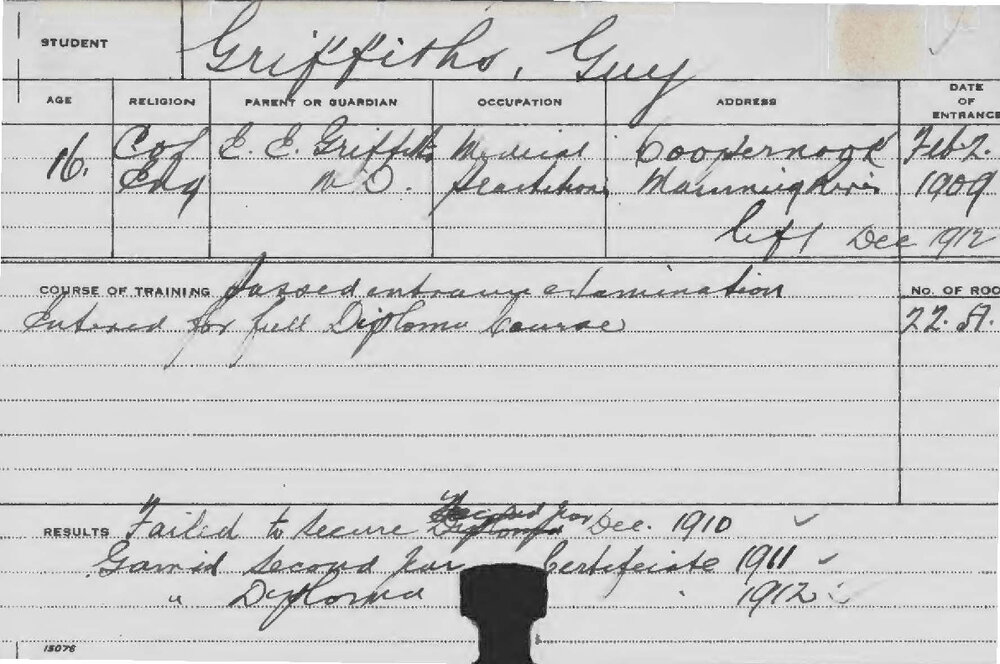 STUDENT Griffiths, Guy
AGE RELIGION PARENT OR GUARDIAN OCCUPATION ADDRESS DATE OF ENTRANCE
16. C of E. E. Griffiths Medical Coopernook Feb 2.
Eng M D. Practitioner Manning River 1909
left Dec 1912
COURSE OF TRAINING Passed entrance examination No. OF ROO
Entered for full Diploma Course 22. A.
RESULTS Failed to secure Second year Dec. 1910
Gained Second year Certificate 1911
" Diploma 1912
15076